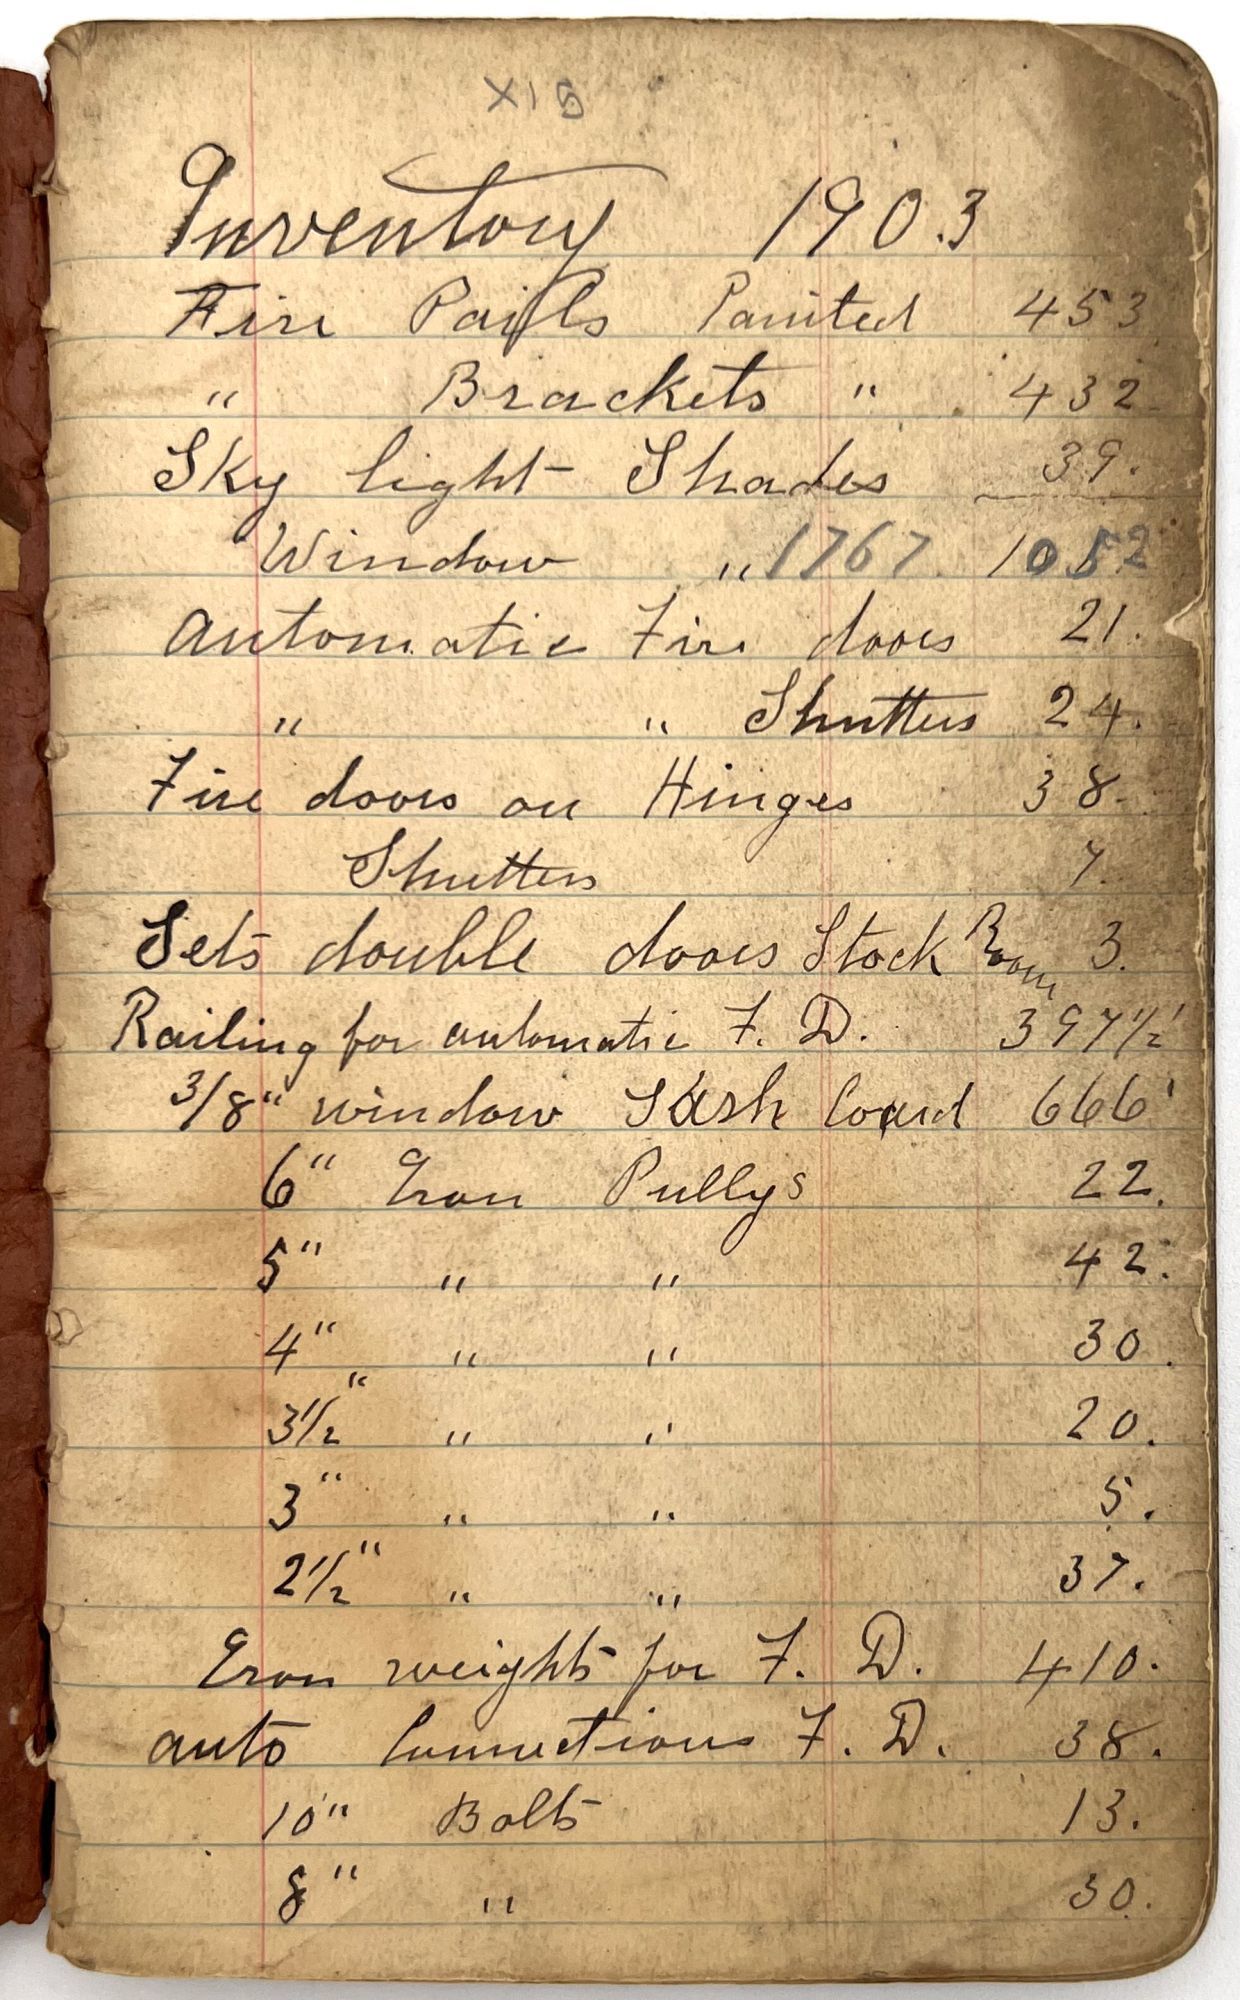 X15
Inventory 190.3
Fire Pails Painted 453
" Brackets " 432
Sky light Shades 39.
Window " 1767. 1052
Automatic Fire doors 21.
" " Shutters 24.
Fire doors on Hinges 38.
Shutters 7.
Sets double doors Stock Room 3.
Railing for automatic F. D. 397 1/2'
3/8" window Sash Coard 666'
6" Iron Pullys 22.
5" " " 42.
4" " " 30.
3 1/2" " " 20.
3" " " 5.
2 1/2" " " 37.
Iron weights for F. D. 410.
auto Connections F. D. 38.
10" Bolts 13.
8" " 30.